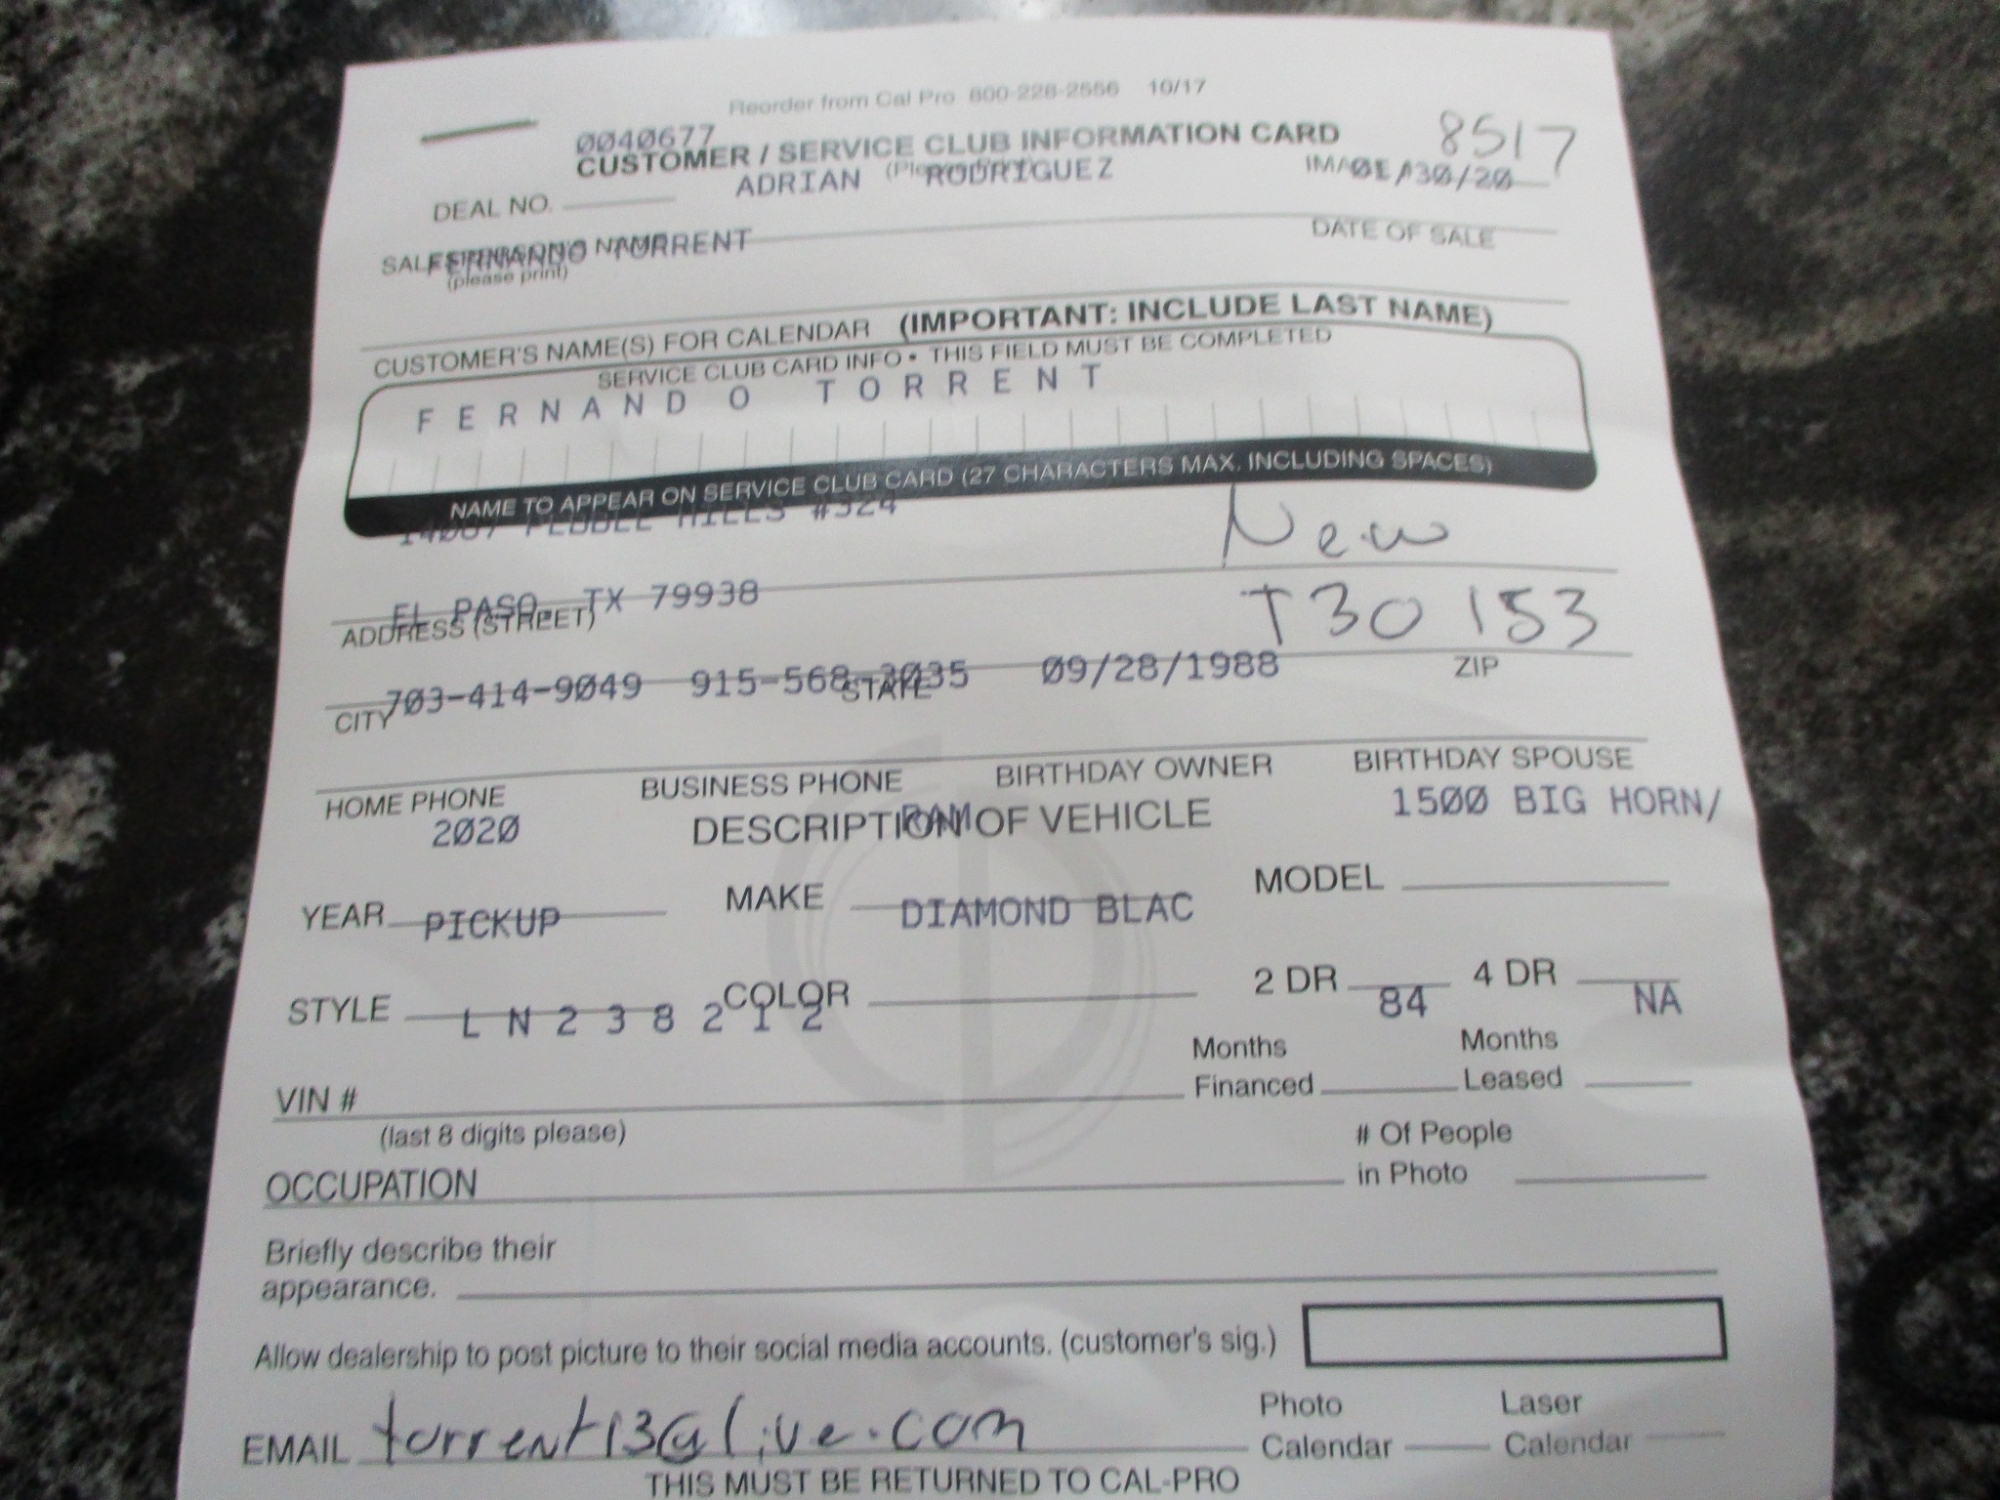 Reorder from Cal Pro 800-228-2556 10/17
0040677
8517
CUSTOMER / SERVICE CLUB INFORMATION CARD
ADRIAN RODRIGUEZ
DEAL NO.
FERNANDO TORRENT
DATE OF SALE
(please print)
CUSTOMER'S NAME(S) FOR CALENDAR (IMPORTANT: INCLUDE LAST NAME)
SERVICE CLUB CARD INFO • THIS FIELD MUST BE COMPLETED
FERNANDO TORRENT
NAME TO APPEAR ON SERVICE CLUB CARD (27 CHARACTERS MAX. INCLUDING SPACES)
HILLS #324
New
EL PASO, TX 79938
ADDRESS (STREET)
T30153
703-414-9049 915-568-3035 09/28/1988
CITY STATE ZIP
HOME PHONE BUSINESS PHONE BIRTHDAY OWNER BIRTHDAY SPOUSE
2020 RAM 1500 BIG HORN/
DESCRIPTION OF VEHICLE
YEAR MAKE MODEL
PICKUP DIAMOND BLAC
STYLE COLOR 2 DR 4 DR
LN238212 84 NA
VIN # Months Financed Months Leased
(last 8 digits please)
OCCUPATION # Of People in Photo
Briefly describe their
appearance.
Allow dealership to post picture to their social media accounts. (customer's sig.)
EMAIL torrent13@live.com Photo Calendar Laser Calendar
THIS MUST BE RETURNED TO CAL-PRO